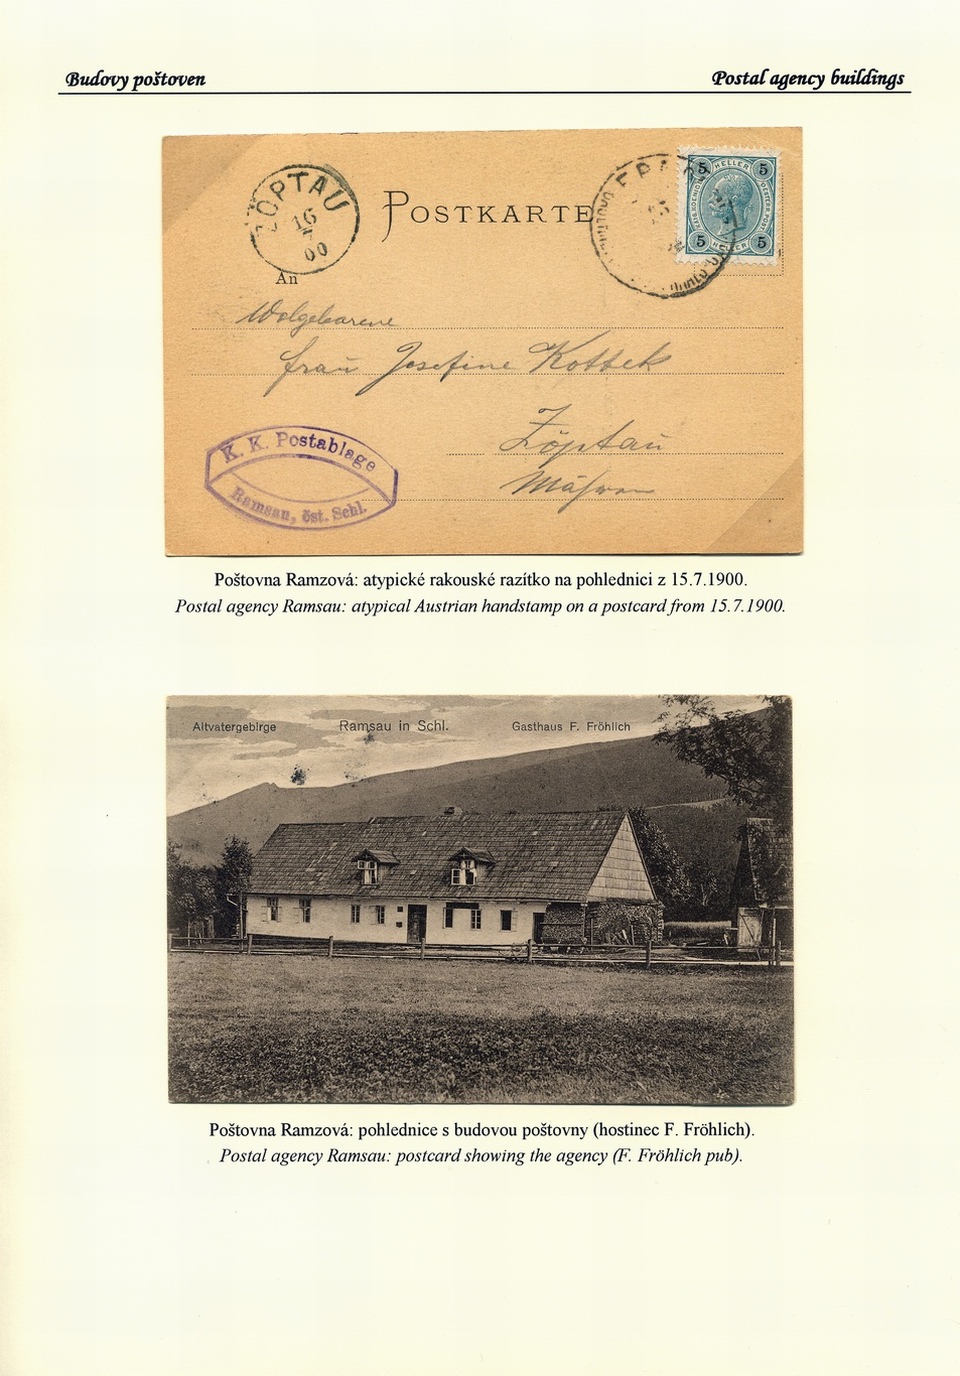 Budovy poštoven
Postal agency buildings
ZÖPTAU
16
7
00
POSTKARTE
5 HELLER 5
5 HELLER 5
An
Wolgeborene
Frau Josefine Kottek
Zöptau
Mähren
K. K. Postablage
Ramsau, öst. Schl.
Poštovna Ramzová: atypické rakouské razítko na pohlednici z 15.7.1900.
Postal agency Ramsau: atypical Austrian handstamp on a postcard from 15.7.1900.
Altvatergebirge
Ramsau in Schl.
Gasthaus F. Fröhlich
Poštovna Ramzová: pohlednice s budovou poštovny (hostinec F. Fröhlich).
Postal agency Ramsau: postcard showing the agency (F. Fröhlich pub).